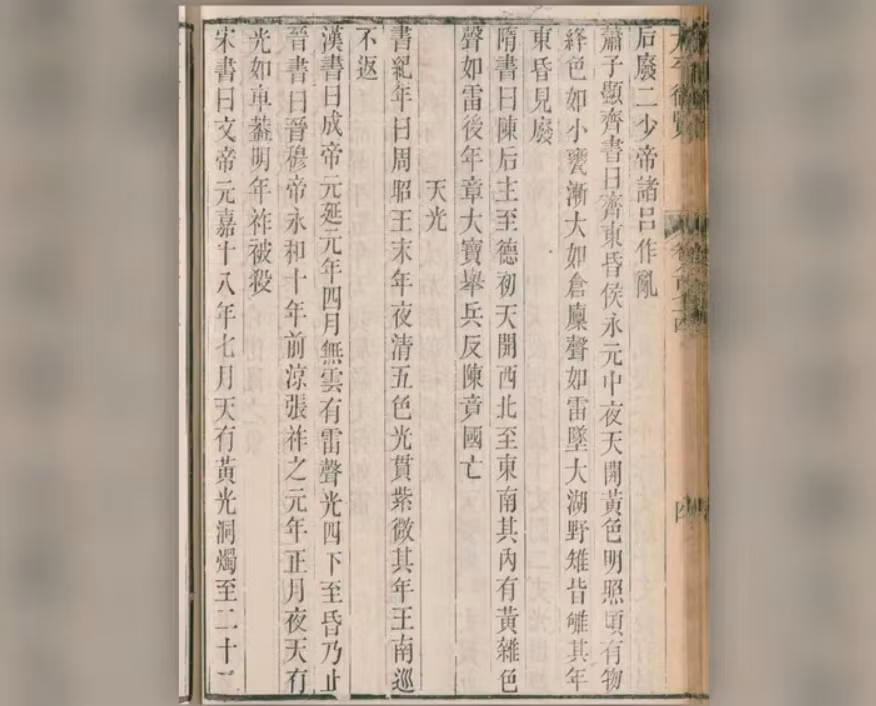 后廢二少帝諸呂作亂
蕭子顯齊書曰齊東昏侯永元中夜天開黃色明照頃有物
絳色如小甕漸大如倉廩聲如雷墜大湖野雉皆雊其年
東昏見廢
隋書曰陳后主至德初天開西北至東南其內有黃雜色
聲如雷後年章大寶舉兵反陳竟國亡
天光
書紀年曰周昭王末年夜清五色光貫紫微其年王南巡
不返
漢書曰成帝元延元年四月無雲有雷聲光四下至昏乃止
晉書曰晉穆帝永和十年前涼張祚之元年正月夜天有
光如車蓋明年祚被殺
宋書曰文帝元嘉十八年七月天有黃光洞燭至二十二